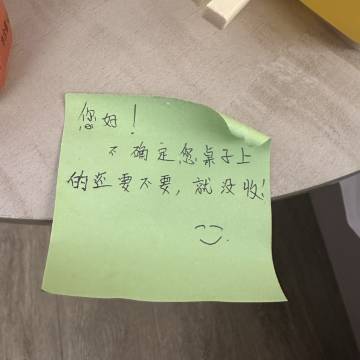 您好!
不确定您桌子上
的还要不要,就没收!